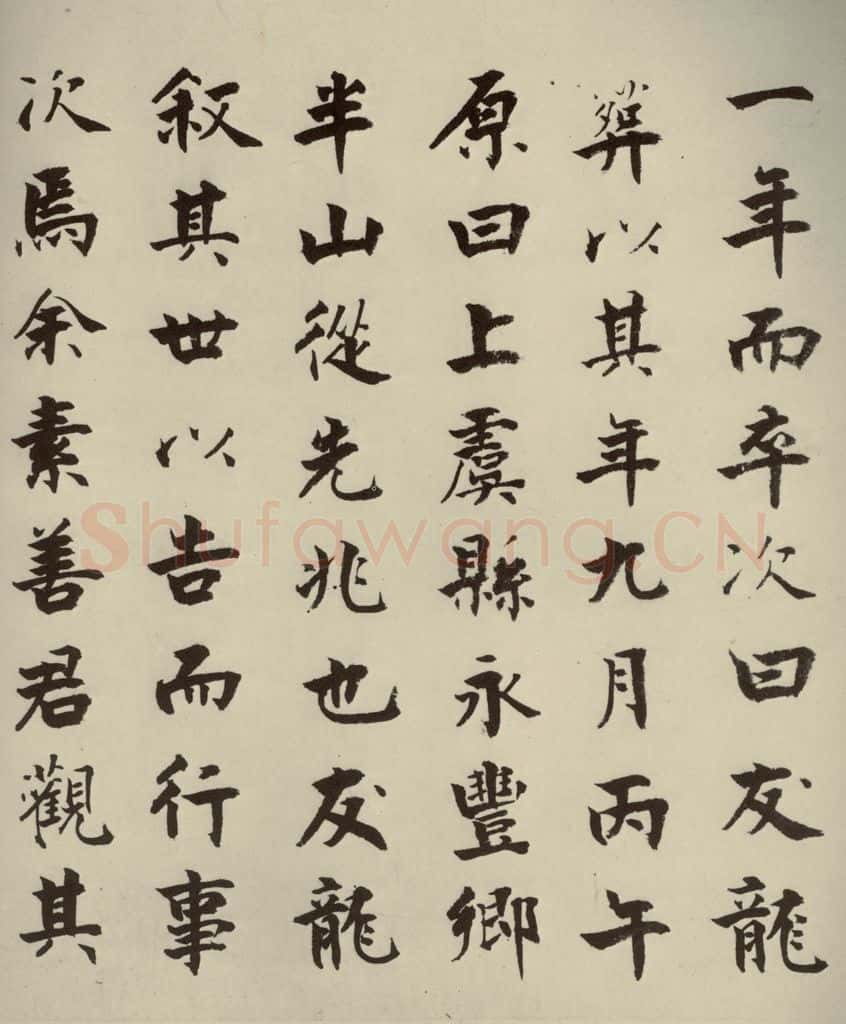 一年而卒次曰友龍
葬以其年九月丙午
原曰上虞縣永豐鄉
半山從先兆也友龍
叙其世以告而行事
次焉余素善君觀其
Shufawang.CN